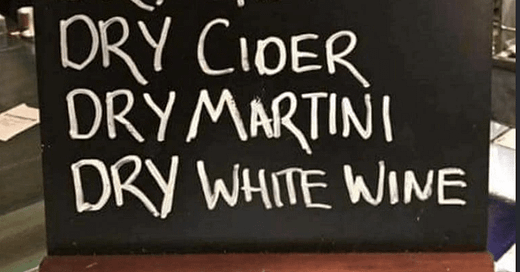 DRY CIDER
DRY MARTINI
DRY WHITE WINE